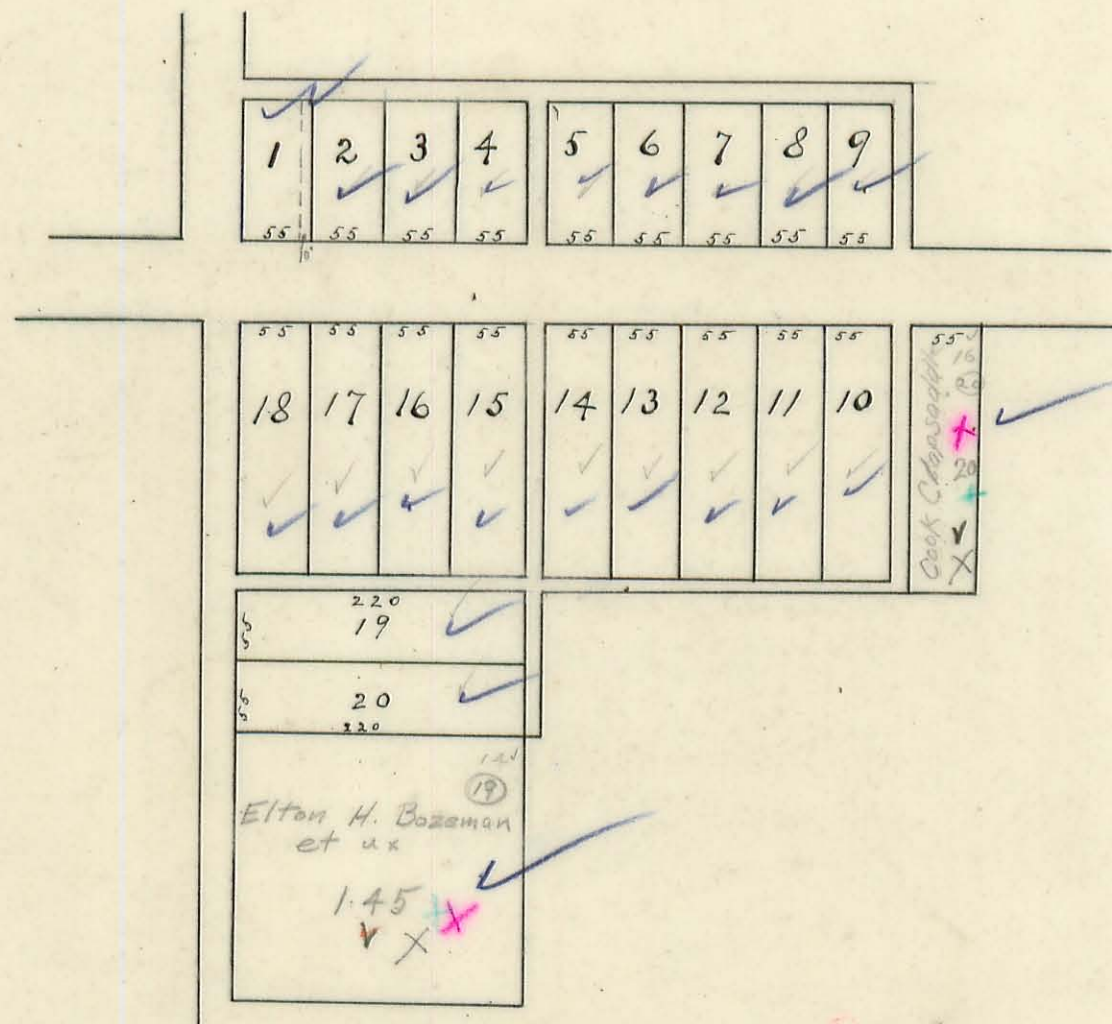 1 2 3 4 5 6 7 8 9
55 55 55 55 55 55 55 55 55
55 55 55 55 55 55 55 55 55 55
16
20
18 17 16 15 14 13 12 11 10
20
Cook
220
19
55
20
55
220
19
Elton H. Bozeman
et ux
1.45